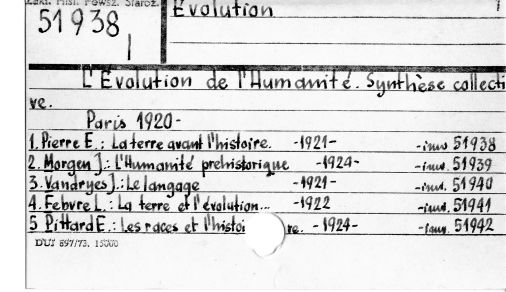 Zakł. Hist. Powsz. Staroż.
Evolution
51938
L'Évolution de l'Humanité. Synthèse collecti
ve.
Paris 1920-
1. Pierre E.: La terre avant l'histoire. -1921- -inw 51938
2. Morgen J.: L'Humanité prehistorique -1924- -inw. 51939
3. Vandryes J.: Le langage -1921- -inw. 51940
4. Febvre L.: La terre et l'évolution... -1922 -inw. 51941
5 Pittard E.: Les races et l'histoi re. -1924- -inw. 51942
DUJ 897/73. 15000